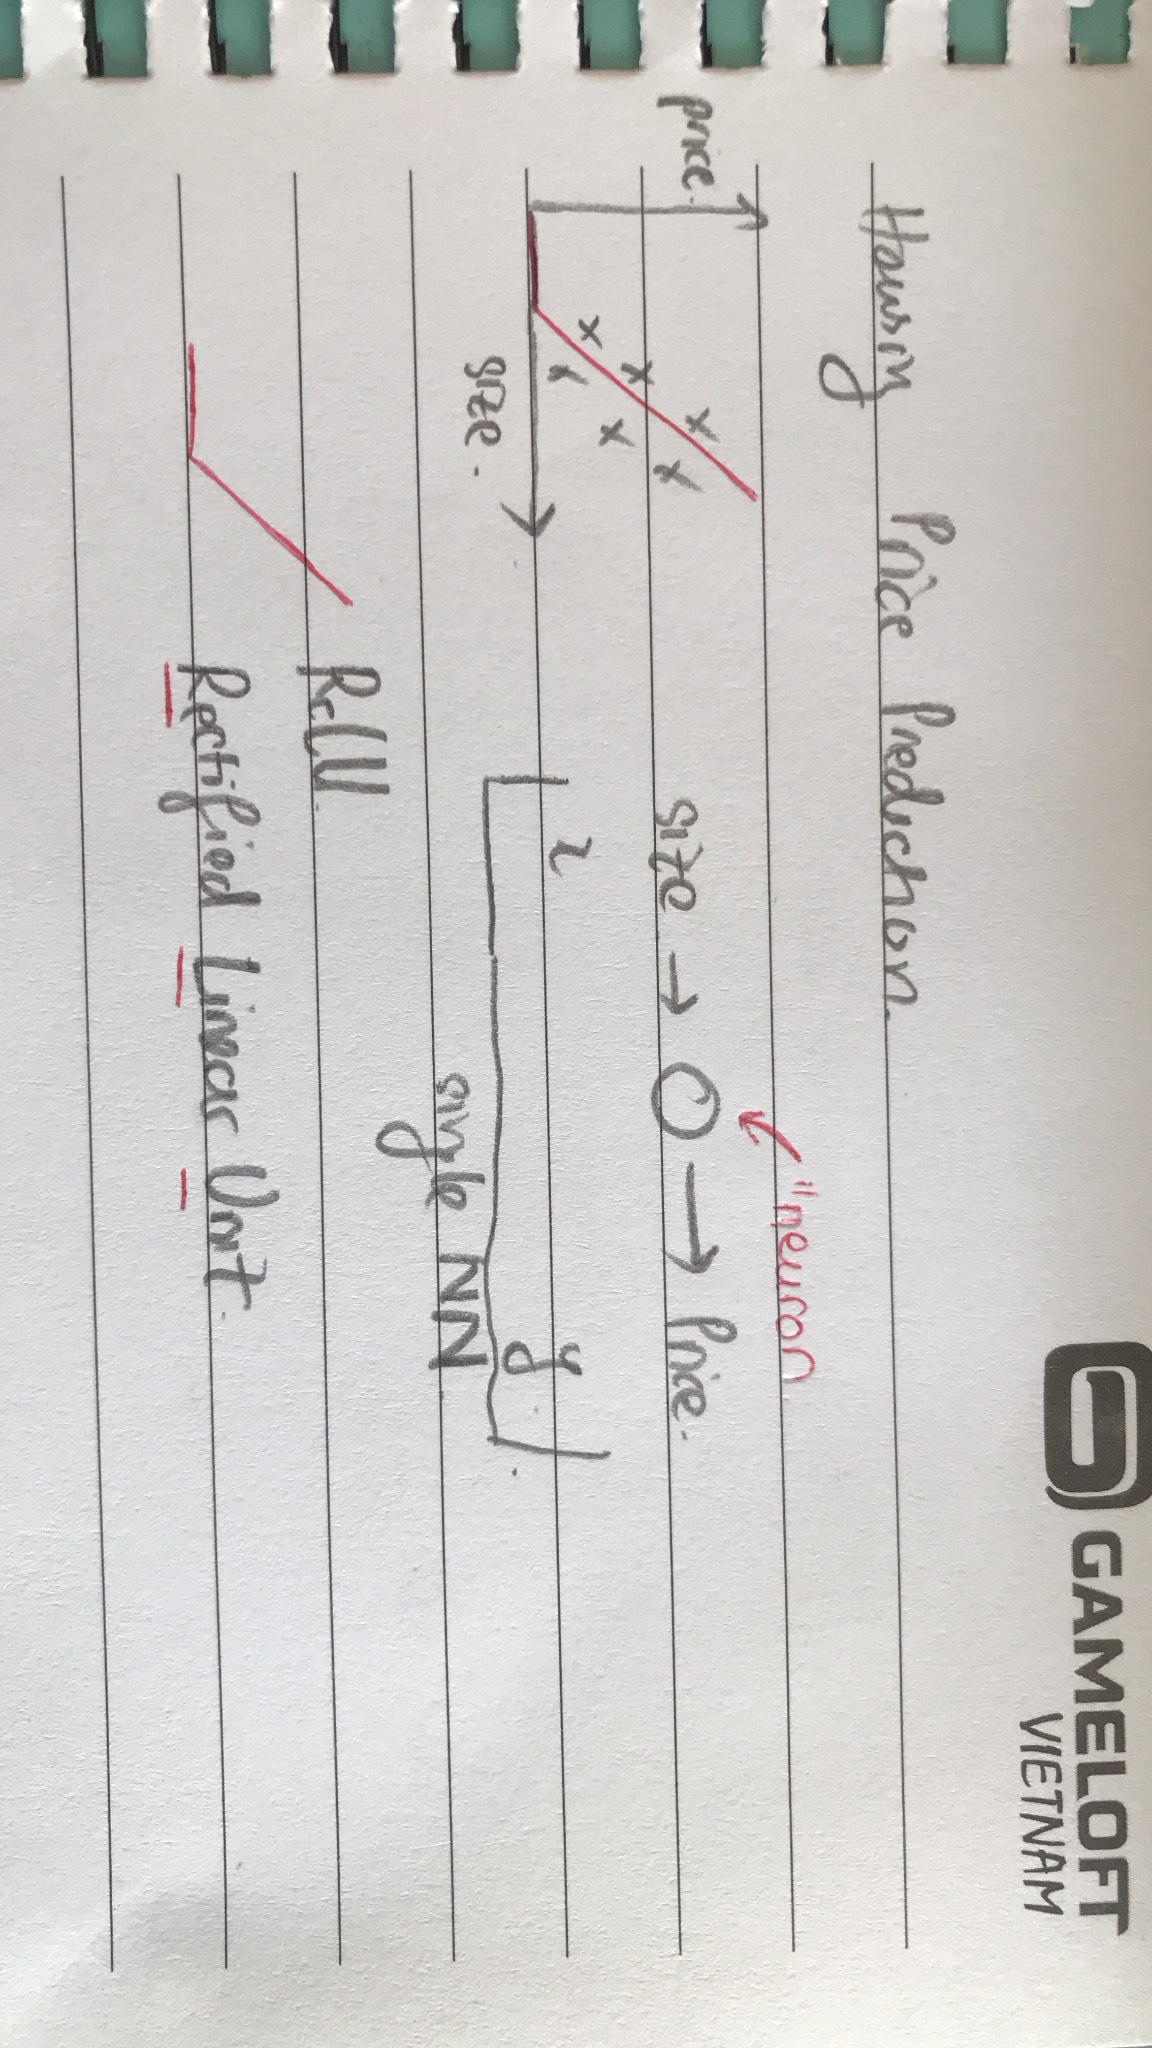 GAMELOFT
VIETNAM
Housing Price Prediction.
"neuron
price.
size → O → Price.
x
y
size.
single NN
ReLU
Rectified Linear Unit.